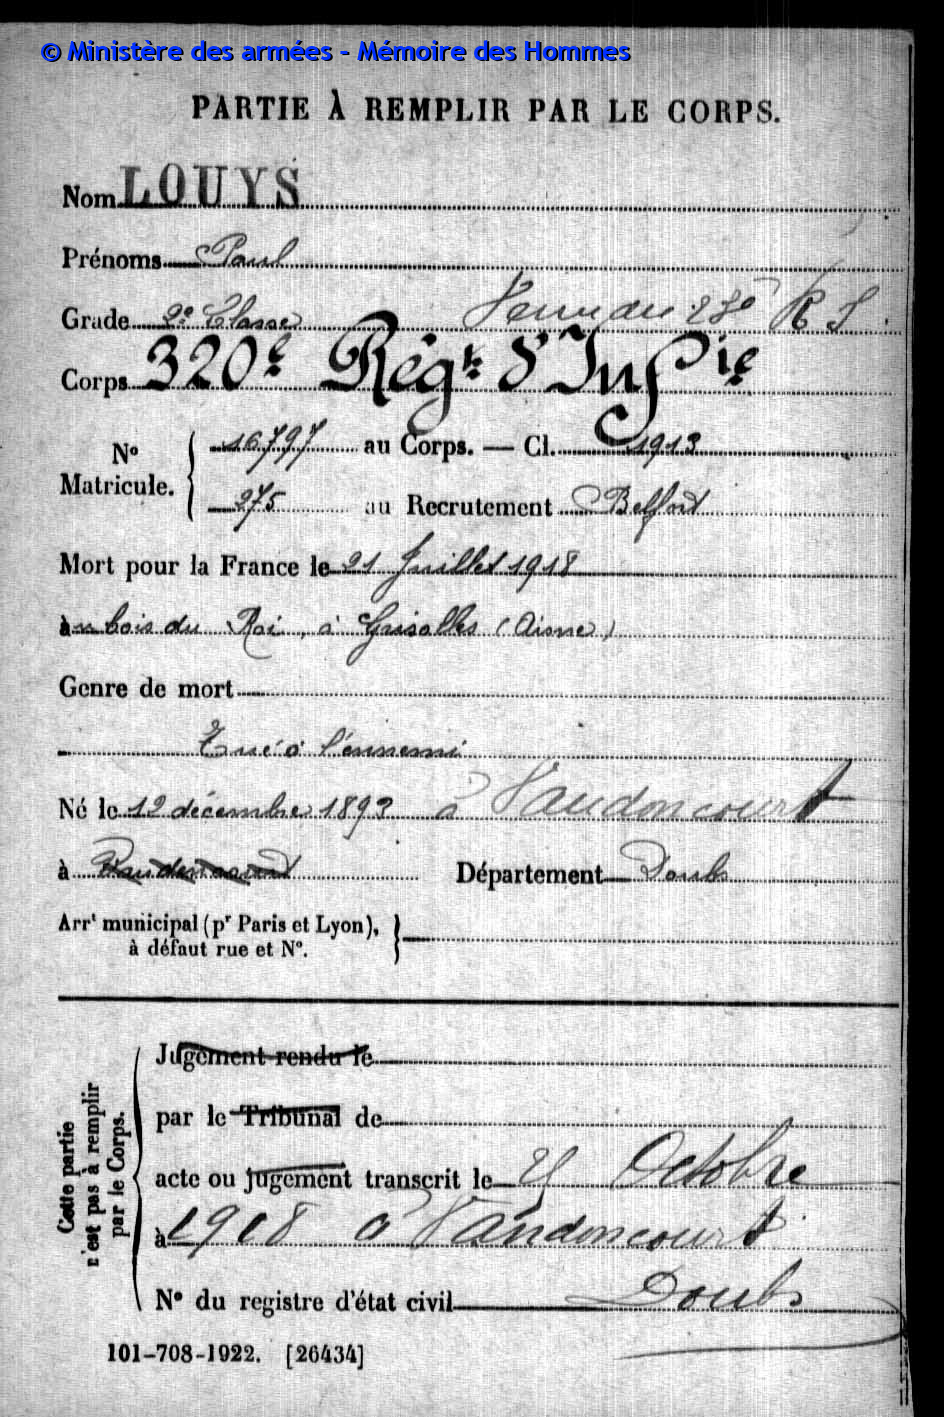 © Ministère des armées - Mémoire des Hommes
PARTIE À REMPLIR PAR LE CORPS.
Nom LOUYS
Prénoms Paul
Grade 2e Classe Venu du 23e R I
Corps 320e Régt d'Infie
No Matricule. 16797 au Corps. — Cl. 1913
275 au Recrutement Belfort
Mort pour la France le 21 Juillet 1918
à au bois du Roi, à Grisolles (Aisne)
Genre de mort
Tué à l'ennemi
Né le 12 décembre 1893 à Vaudoncourt
à Département Doubs
Arrt municipal (pr Paris et Lyon),
à défaut rue et No.
Cette partie
n'est pas à remplir
par le Corps.
Jugement rendu le
par le Tribunal de
acte ou jugement transcrit le 21 Octobre
à 1918 à Vandoncourt
No du registre d'état civil Doubs
101-708-1922. [26434]